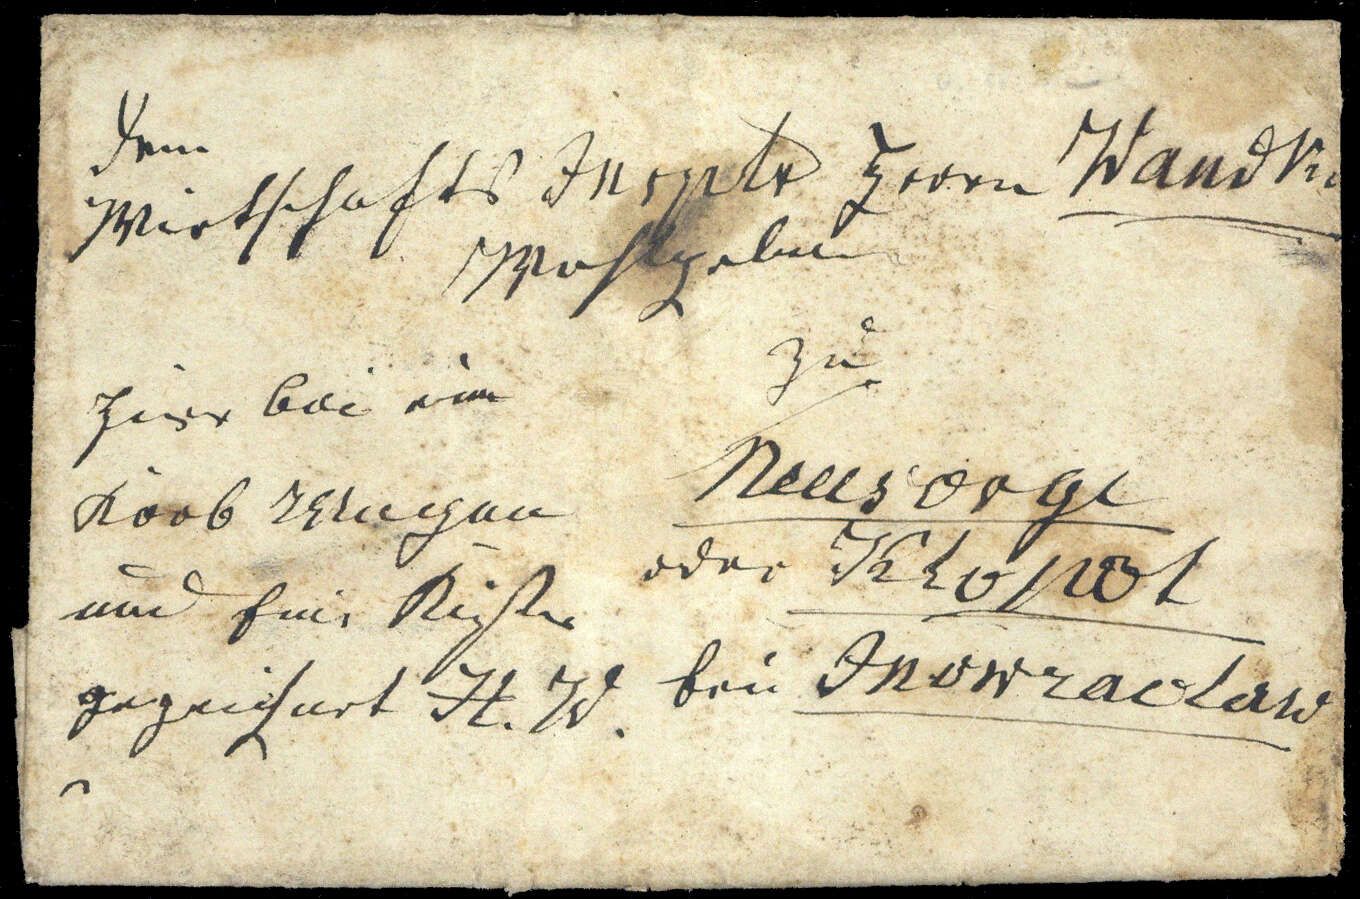 Dem
Wirthschafts Inspktr Herrn Wandk
Wohlgeborn
zu
Neusorge
oder Klopot
bei Inowraclaw
Hier bei ein
Korb
und eine Kiste
gezeichnet H. W.